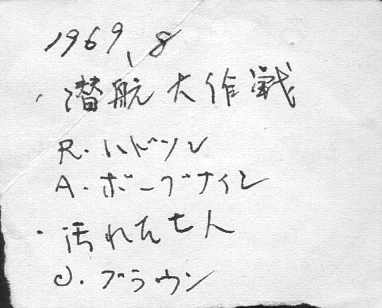 1969、8
・潜航大作戦
R・ハドソン
A・ボーグナイン
・汚れた七人
J・ブラウン